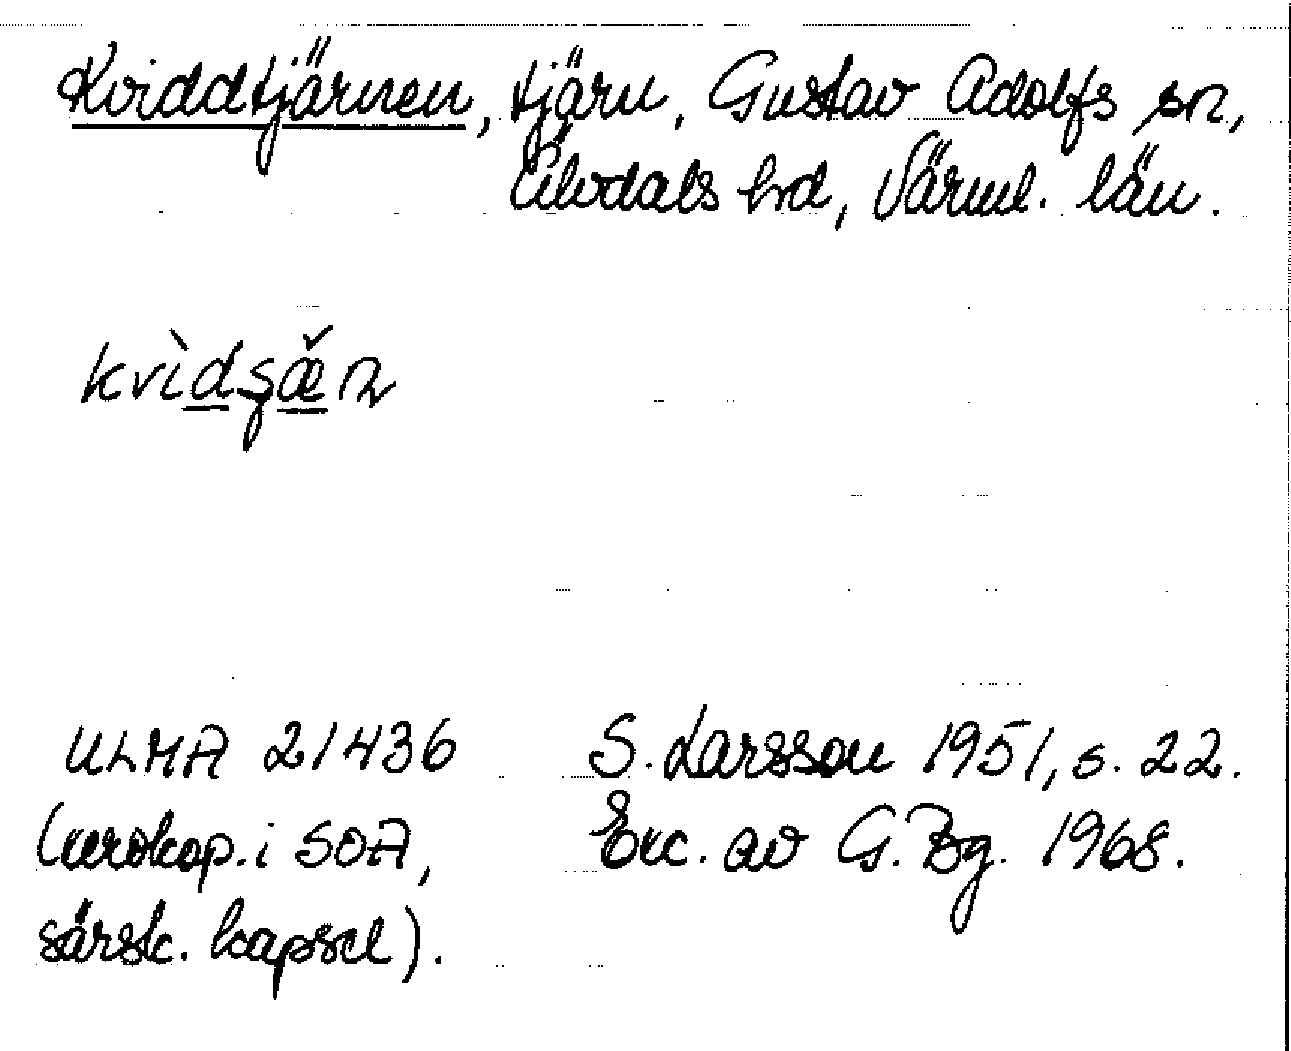 Kviddtjärnen, tjärn, Gustav Adolfs sn,
Älvdals hd, Värml. län.
kvìdʂæ̌n
ULMA 21436
(xerokop. i SOA,
särsk. kapsel).
S. Larsson 1951, s. 22.
Exc. av G. Bg. 1968.